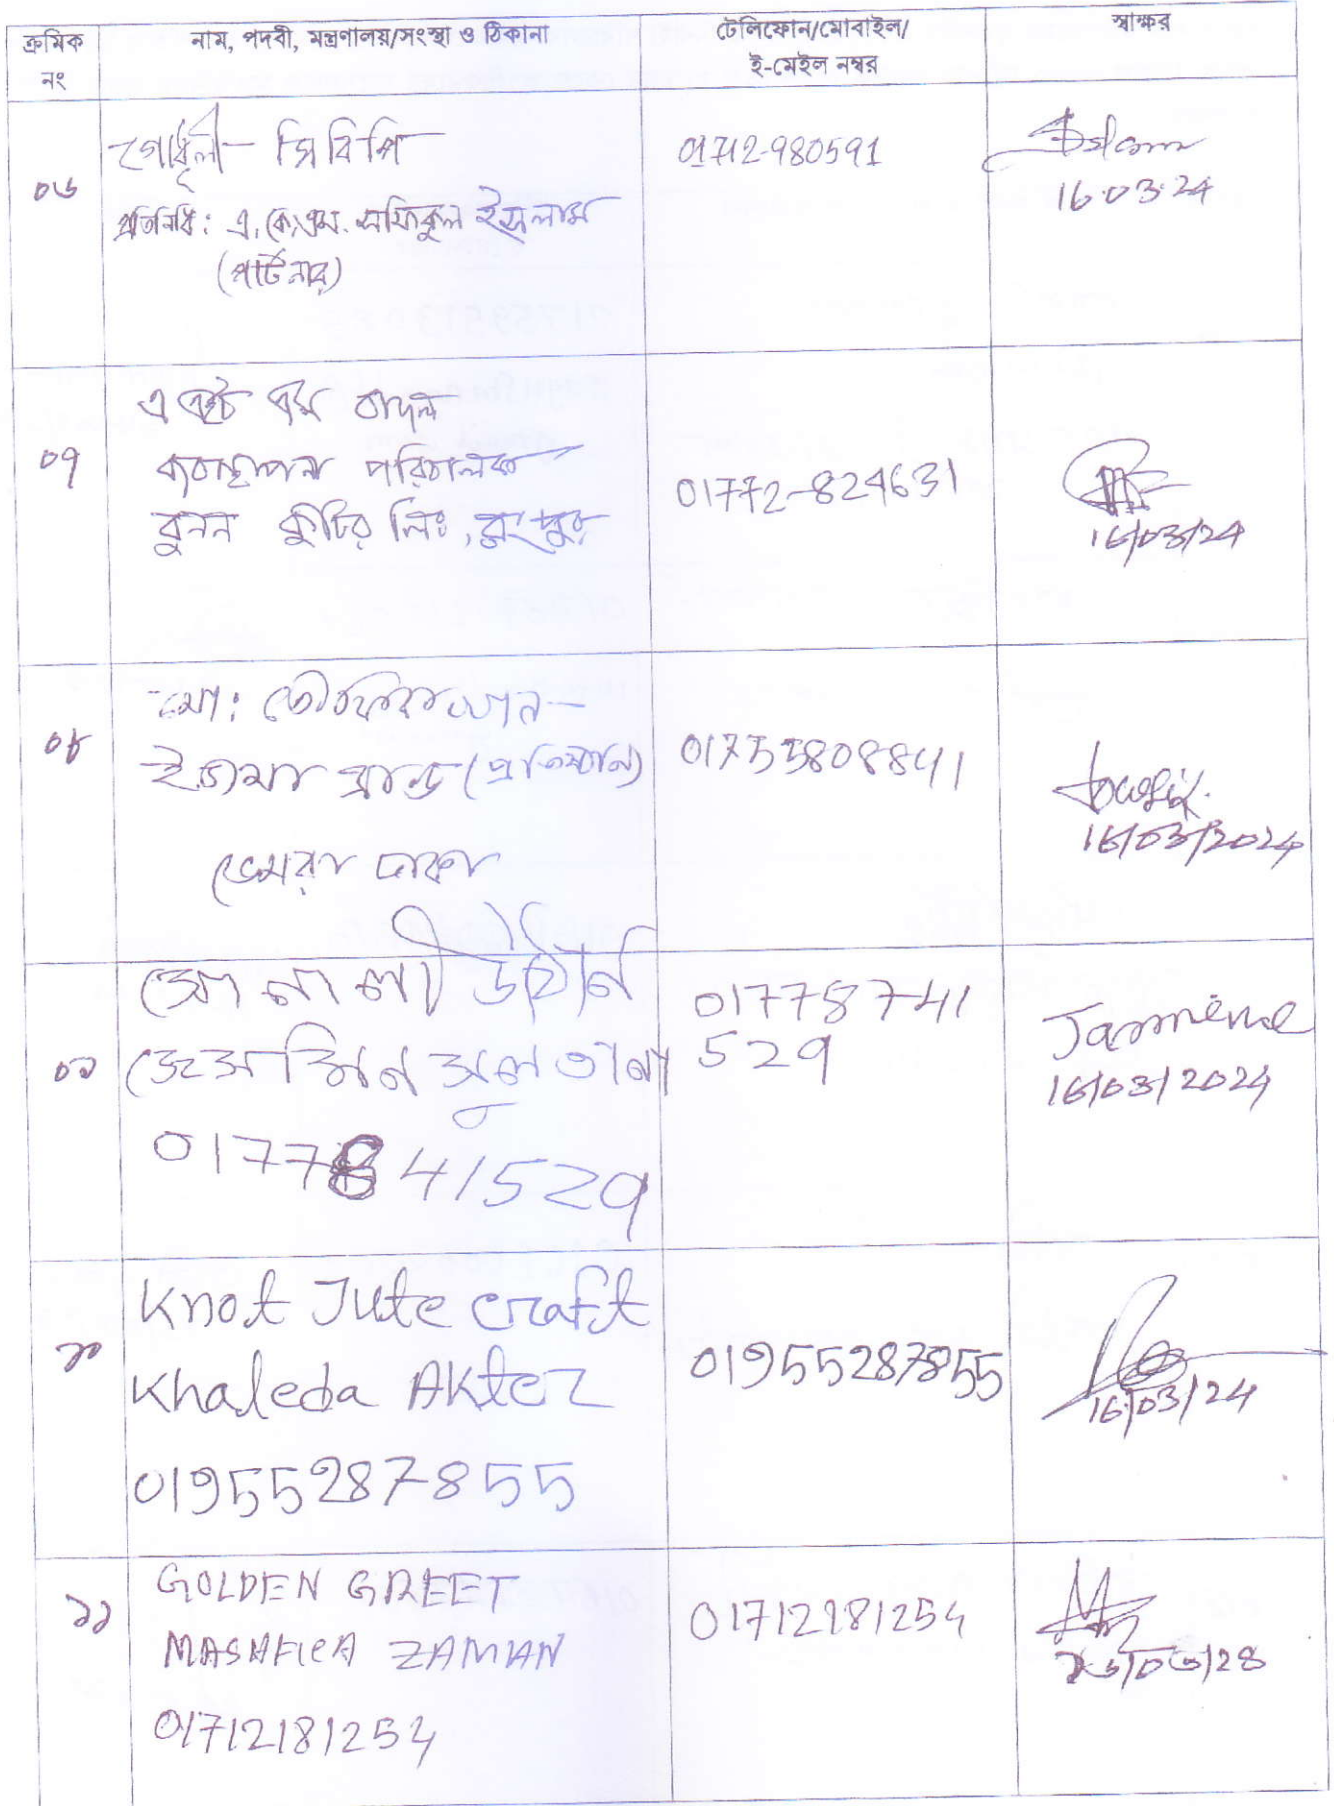 ক্রমিক নং
নাম, পদবী, মন্ত্রণালয়/সংস্থা ও ঠিকানা
টেলিফোন/মোবাইল/
ই-মেইল নম্বর
স্বাক্ষর
০৬
গোধূলী সি বি পি
প্রতিনিধি: এ.কে.এম. সফিকুল ইসলাম
(পার্টনার)
01712-980591
Islam
16.03.24
০৭
এ এইচ এম বাদল
ব্যবস্থাপনা পরিচালক
বুনন কুটির লিঃ, রংপুর
01772-824631
16/03/24
০৮
মো:
(প্রতিষ্ঠান)
ঢাকা
01755808841
towfiq.
16/03/2024
০৯
সোনালী উঠান
জেসমিন সুলতানা
01778 41529
01778741
529
Jasmine
16/03/2024
১০
Knot Jute craft
Khaleda AKter
01955287855
01955287855
16/03/24
১১
GOLDEN GREET
MASHFICA ZAMAN
01712181254
01712181254
১৬/০৩/২৪